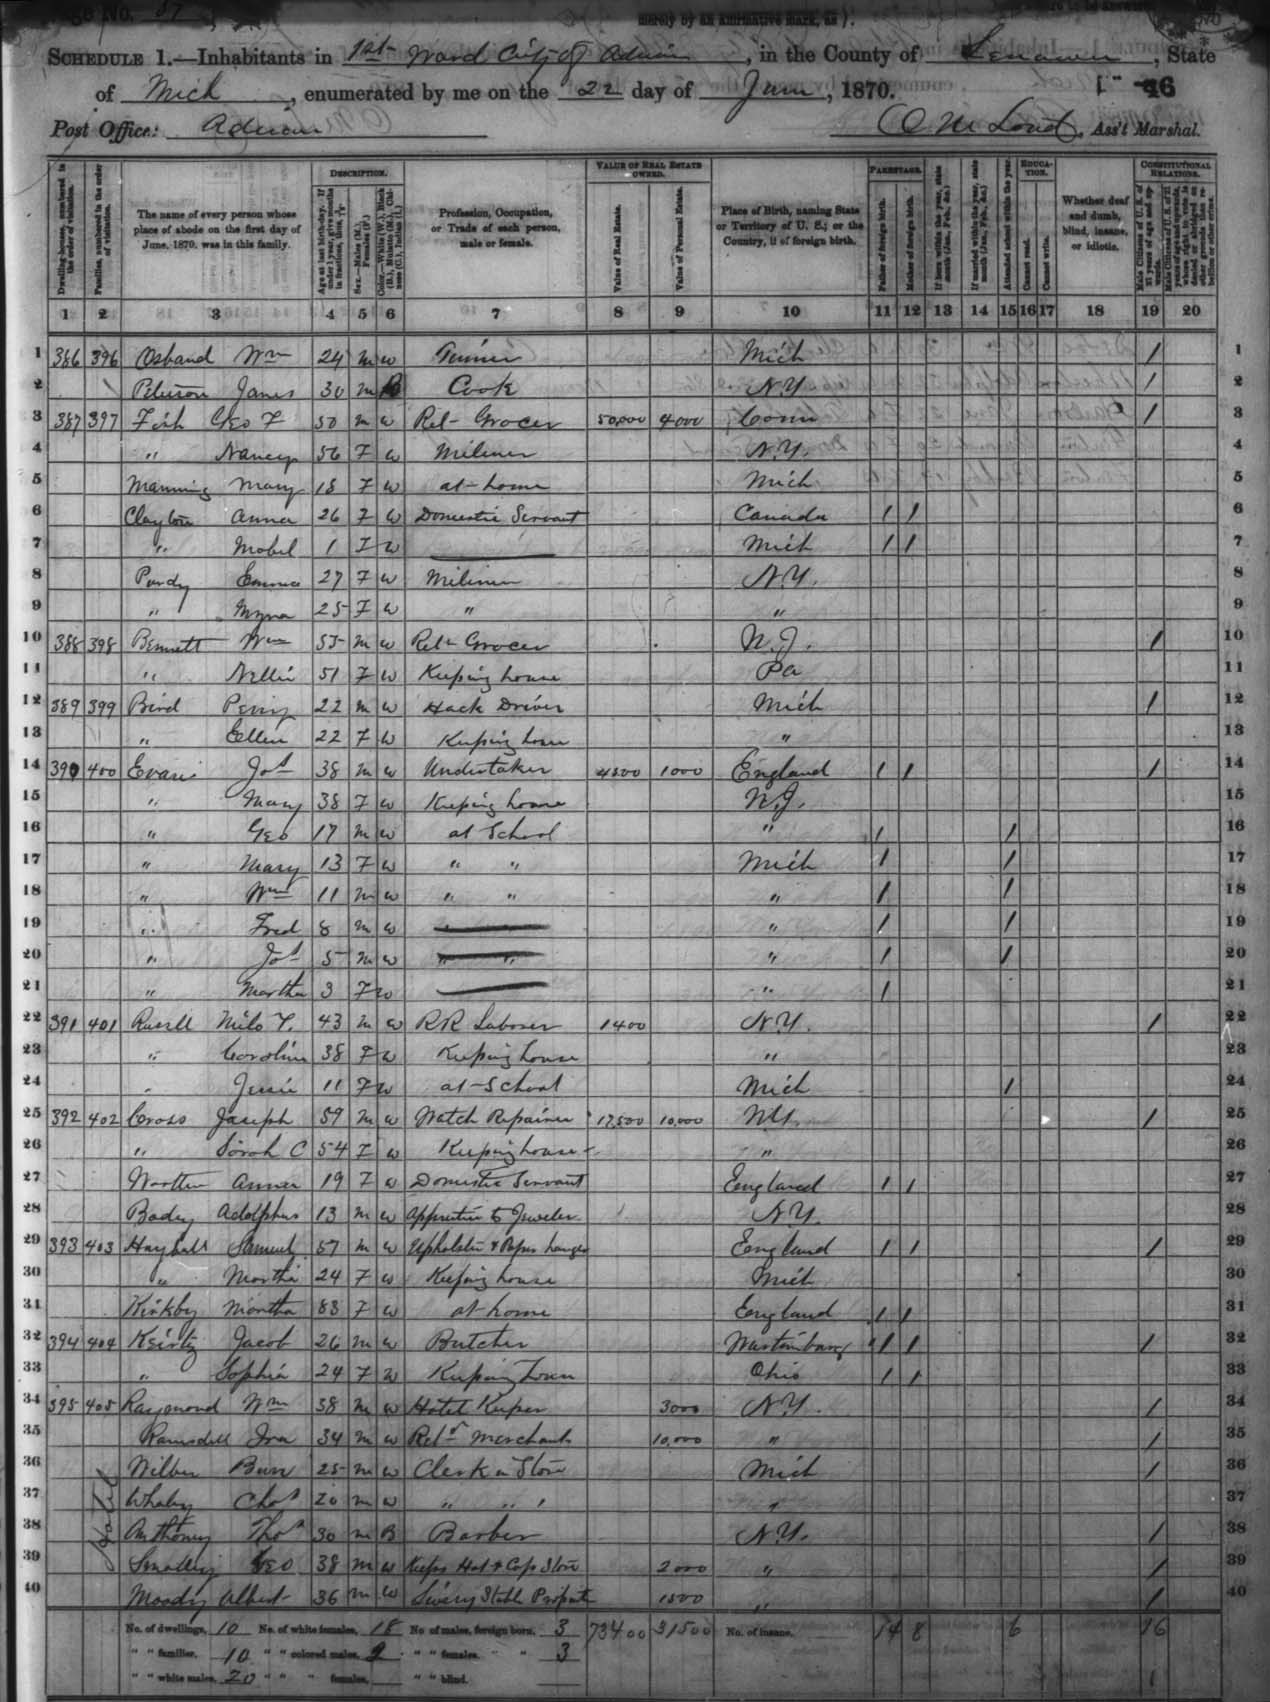 No. 57
merely by an affirmative mark, as /.
SCHEDULE 1.—Inhabitants in 1st Ward City of Adrian, in the County of Lenawee, State
of Mich, enumerated by me on the 22 day of June, 1870. 46
Post Office: Adrian , Ass't Marshal.
DESCRIPTION. VALUE OF REAL ESTATE OWNED. PARENTAGE. EDUCATION. CONSTITUTIONAL RELATIONS.
Dwelling-houses, numbered in the order of visitation. Families, numbered in the order of visitation. The name of every person whose place of abode on the first day of June, 1870, was in this family. Age at last birth-day. If under 1 year, give months in fractions, thus, 3/12 Sex.—Males (M.), Females (F.) Color.—White (W.), Black (B.), Mulatto (M.), Chinese (C.), Indian (I.) Profession, Occupation, or Trade of each person, male or female. Value of Real Estate. Value of Personal Estate. Place of Birth, naming State or Territory of U. S.; or the Country, if of foreign birth. Father of foreign birth. Mother of foreign birth. If born within the year, state month (Jan., Feb., &c.) If married within the year, state month (Jan., Feb., &c.) Attended school within the year. Cannot read. Cannot write. Whether deaf and dumb, blind, insane, or idiotic. Male Citizens of U. S. of 21 years of age and upwards. Male Citizens of U. S. of 21 years of age and upwards, whose right to vote is denied or abridged on other grounds than rebellion or other crime.
1 2 3 4 5 6 7 8 9 10 11 12 13 14 15 16 17 18 19 20
1 386 396 Osband Wm 24 m w Tinner Mich / 1
2 Peterson James 30 m B Cook N.Y. / 2
3 387 397 Fish Geo F 50 m w Ret Grocer 50,000 4000 Conn / 3
4 " Nancy 56 F w Miliner N.Y. 4
5 Manning Mary 18 F w at home Mich 5
6 Clayton Anna 26 F w Domestic Servant Canada / / 6
7 " Mabel 1 F w Mich / / 7
8 Purdy Emma 27 F w Miliner N.Y. 8
9 " Myra 25 F w " " 9
10 388 398 Bennett Wm 55 m w Ret Grocer N.J. / 10
11 " Nellie 51 F w Keeping house Pa 11
12 389 399 Bird Perry 22 m w Hack Driver Mich / 12
13 " Ellen 22 F w Keeping house " 13
14 390 400 Evans Jos 38 m w Undertaker 4500 1000 England / / / 14
15 " Mary 38 F w Keeping house N.J. 15
16 " Geo 17 m w at School " / / 16
17 " Mary 13 F w " " Mich / / 17
18 " Wm 11 m w " " " / / 18
19 " Fred 8 m w " / / 19
20 " Jos 5 m w " " " / / 20
21 " Martha 3 F w " / 21
22 391 401 Russell Milo T. 43 m w RR Laborer 1400 N.Y. / 22
23 " Caroline 38 F w Keeping house " 23
24 " Jessie 11 F w at School Mich / 24
25 392 402 Cross Joseph 59 m w Watch Repairer 17,500 10,000 NY. / 25
26 " Sarah C 54 F w Keeping house " 26
27 Anna 19 F w Domestic Servant England / / 27
28 Adolphus 13 m w Apprentice to Jeweler N.Y. 28
29 393 403 Hayball Samuel 57 m w Upholster & Paper hanger England / / / 29
30 " Martha 24 F w Keeping house Mich 30
31 Kirkby Martha 83 F w at home England / / 31
32 394 404 Jacob 26 m w Butcher / / / 32
33 " Sophia 24 F w Keeping house Ohio / / 33
34 395 405 Raymond Wm 38 m w Hotel Keeper 3000 N.Y. / 34
35 Ramsdell Ira 34 m w Retl Merchant 10,000 " / 35
36 Wilber Burr 25 m w Clerk in Store Mich / 36
37 Whaley Chas 20 m w " " " " 37
38 Anthoney Thos 30 m B Barber N.Y. / 38
39 Smalley Geo 38 m w Keeps Hat & Cap Store 2000 " / 39
40 Moody Albert 36 m w Livery Stable Proprietor 1500 " / 40
Hotel
No. of dwellings, 10 No. of white females, 18 No. of males, foreign born, 3 73400 31500 No. of insane, 14 8 6 16
" " families, 10 " " colored males, 2 " " females, " " 3
" " white males, 20 " " " females, " " blind. 1